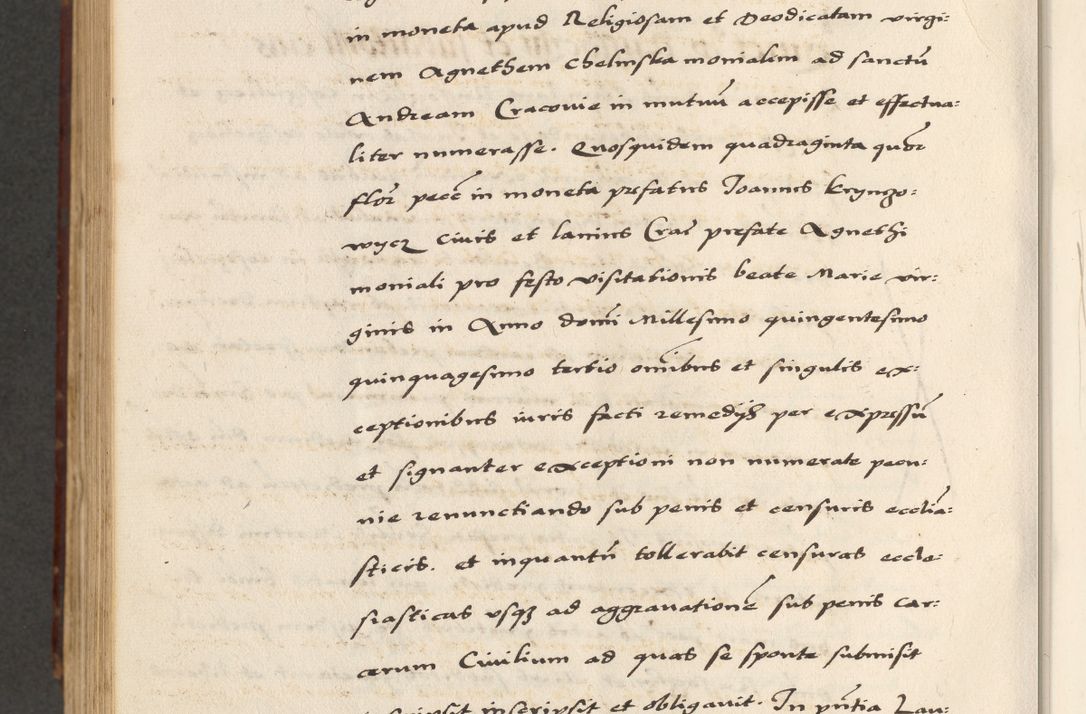 in moneta apud Religiosam et Deodicatam virgi:
nem Agnethem Chelmska monialem ad sanctū
Andream Cracovie in mutuū accepisse et effectua:
liter numerasse. Quosquidem quadraginta quōr
flōr pecē in moneta prefatus Ioannes Kryngo:
wycz Civis et lanius Crāe prefate Agnethi
moniali pro festo visitationis beate Marie vir:
ginis in Anno domī Millesimo quingentesimo
quinquagesimo tertio omībus et singulis ex:
ceptionibus iuris facti remedijs per expressū
et signanter exceptioni non numerate pecu:
nie renunctiando sub penis et censuris eccliā:
sticis. et inquantū tollerabit censuras eccle:
siasticas usqȝ ad aggravationē sub penis car:
cerum Civilium ad quas se sponte submisit
inscripsit et obligavit. In pn̄tia Lau: